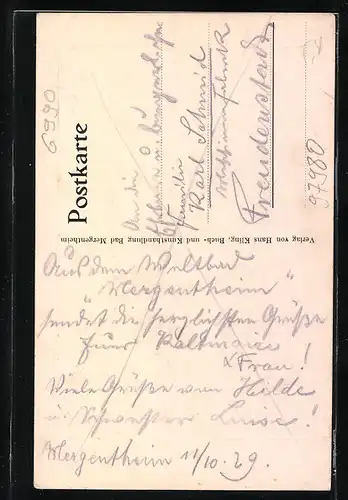 Postkarte
An die
u.
Familie
Karl Schmid
Freudenstadt
Verlag von Hans Kling, Buch- und Kunsthandlung Bad Mergentheim
Aus dem Weltbad
"Mergentheim"
sendet die herzlichsten Grüße
Frau!
Viele Grüße von Hilde
u. Schwester Luise!
Mergentheim 11/10. 29.
6990
97980